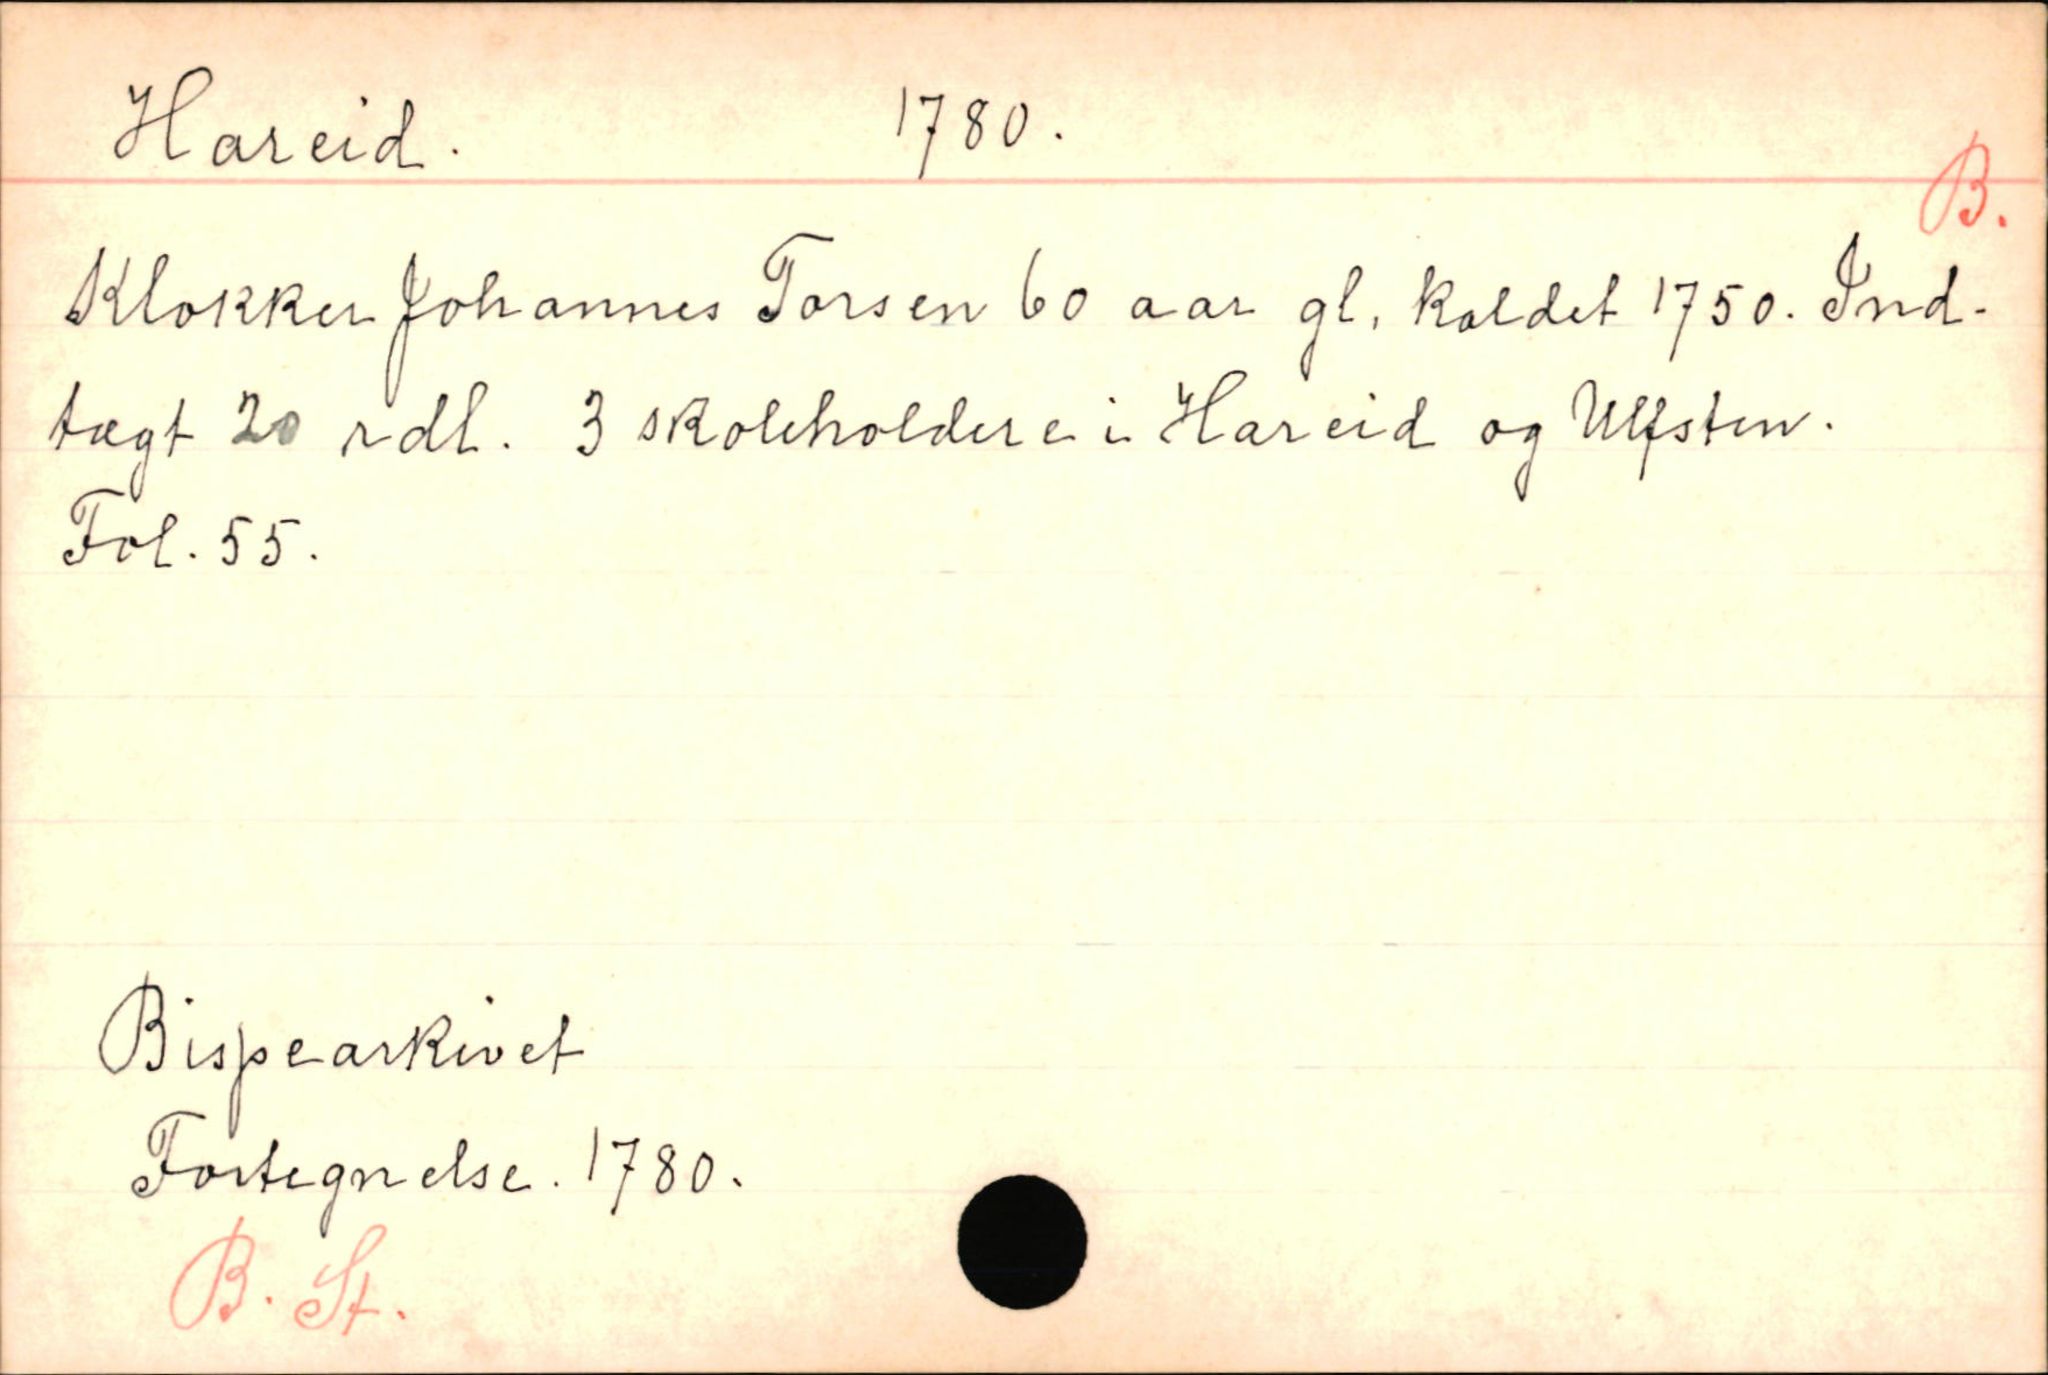 Hareid. 1780.
B.
Klokker Johannes Torsen 60 aar gl, kaldet 1750. Ind-
tægt 20 rdl. 3 skoleholdere i Hareid og Ulfsten.
Fol. 55.
Bispearkivet
Fortegnelse. 1780.
B. St.